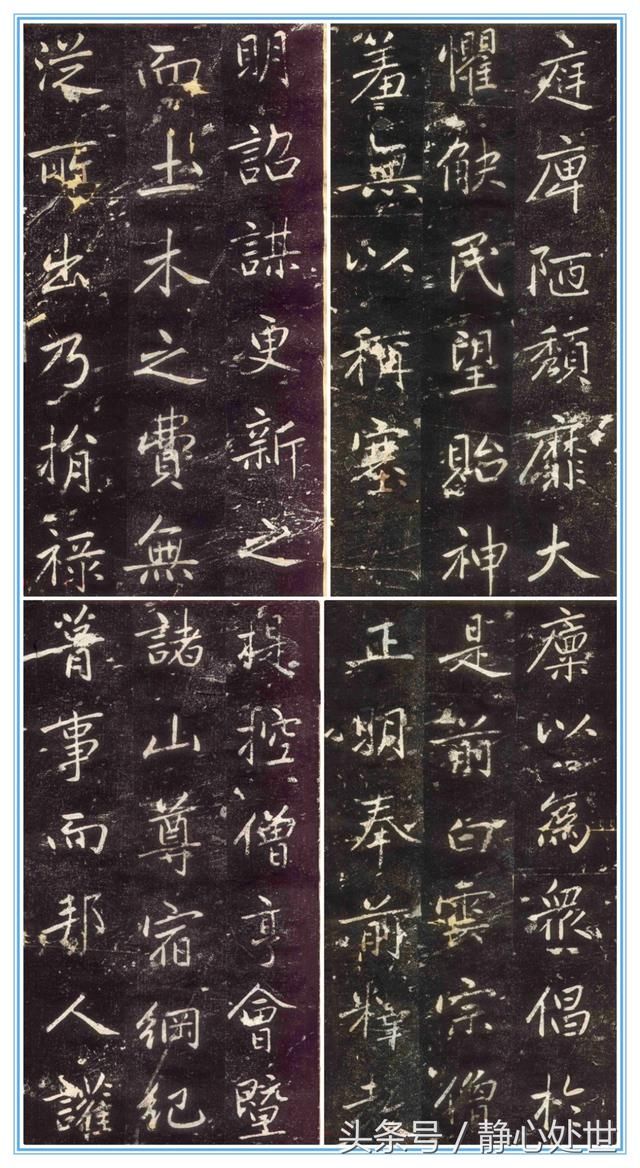 庭庳陋頹靡大
懼觖民望貽神
羞無以稱塞
明詔謀更新之
而土木之費無
從所出乃捐祿
廩以為衆倡於
是前白雲宗僧
正明奉前釋
提控僧亨會暨
諸山尊宿綱紀
事而邦人讙
头条号 / 静心处世